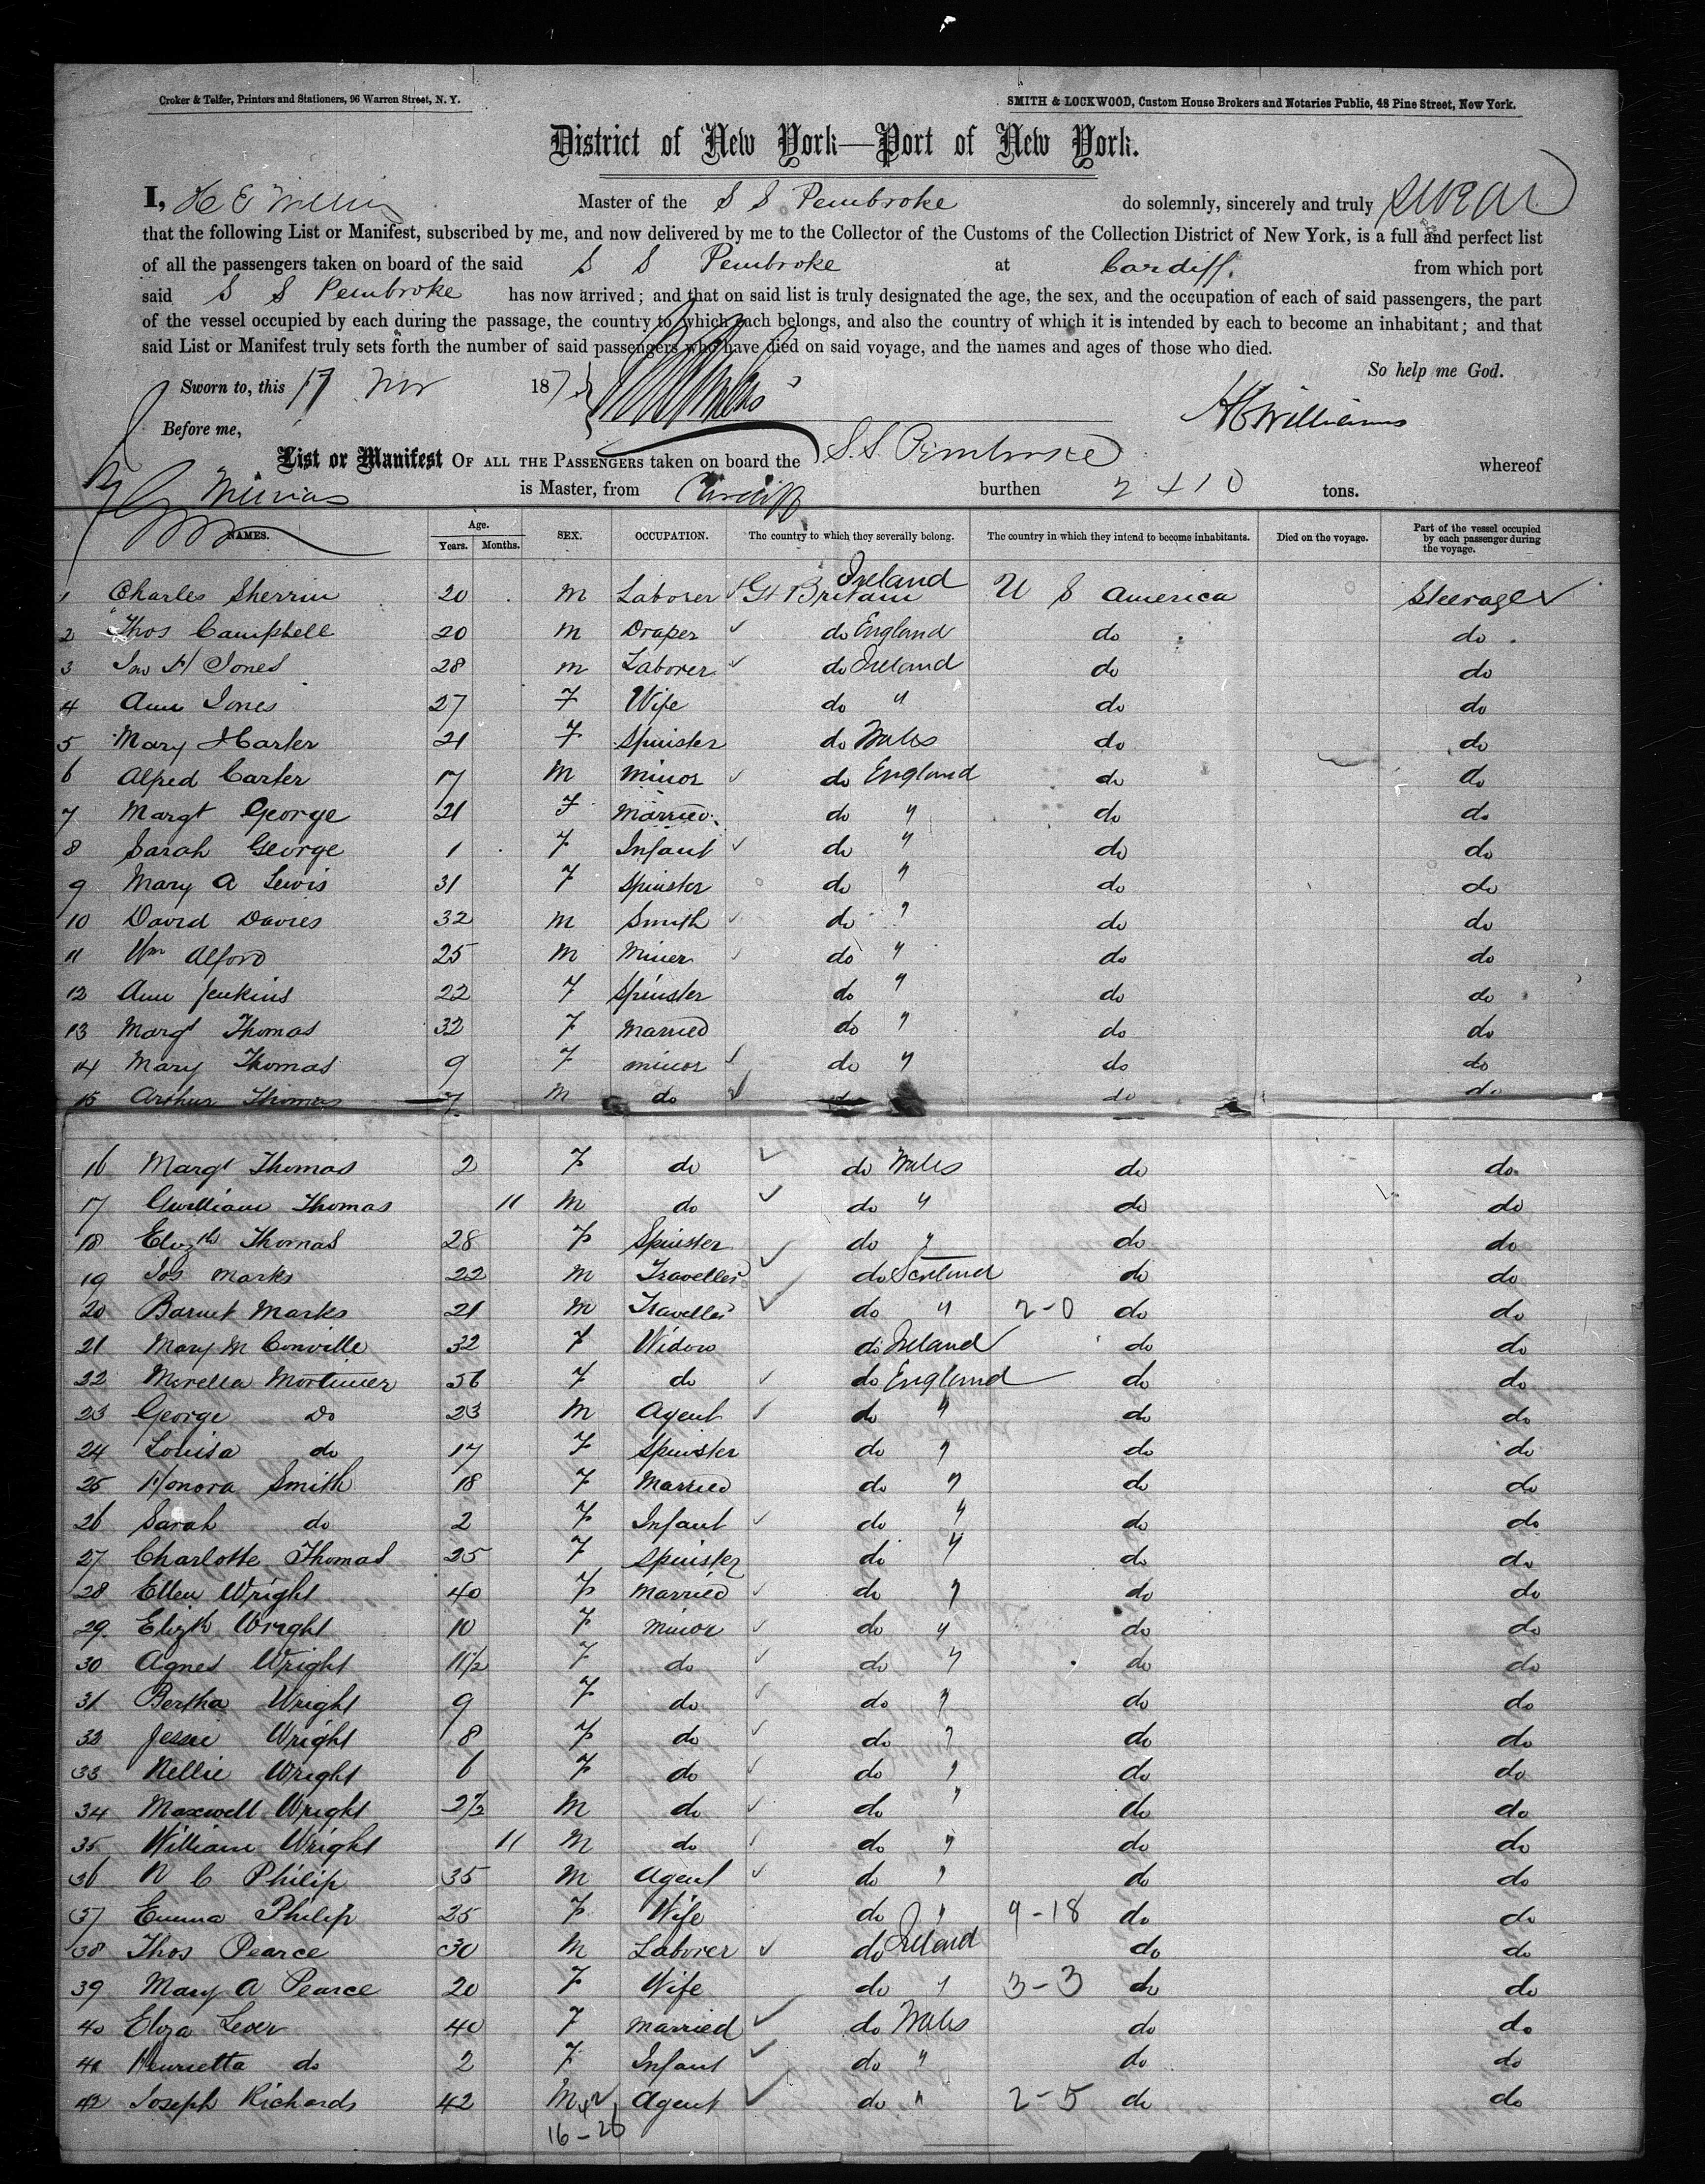 Croker & Telfer, Printers and Stationers, 96 Warren Street, N. Y.
SMITH & LOCKWOOD, Custom House Brokers and Notaries Public, 48 Pine Street, New York.
District of New York—Port of New York.
I, H E Williams Master of the S S Pembroke do solemnly, sincerely and truly swear
that the following List or Manifest, subscribed by me, and now delivered by me to the Collector of the Customs of the Collection District of New York, is a full and perfect list
of all the passengers taken on board of the said S S Pembroke at Cardiff. from which port
said S S Pembroke has now arrived; and that on said list is truly designated the age, the sex, and the occupation of each of said passengers, the part
of the vessel occupied by each during the passage, the country to which each belongs, and also the country of which it is intended by each to become an inhabitant; and that
said List or Manifest truly sets forth the number of said passengers who have died on said voyage, and the names and ages of those who died.
So help me God.
Sworn to, this 17 Nov 187
H E Williams
Before me,
List or Manifest OF ALL THE PASSENGERS taken on board the S.S. Pembroke whereof
is Master, from Cardiff burthen tons.
NAMES. Age. Years. Months. SEX. OCCUPATION. The country to which they severally belong. The country in which they intend to become inhabitants. Died on the voyage. Part of the vessel occupied by each passenger during the voyage.
1 Charles Sherrin 20 M Laborer Gt Britain Ireland U S America Steerage
2 Thos Campbell 20 M Draper do England do do
3 Jno H Jones 28 M Laborer do Ireland do do
4 Ann Jones 27 F Wife do " do do
5 Mary Harter 21 F Spinster do Wales do do
6 Alfred Carter 17 M Minor do England do do
7 Margt George 21 F Married do " do do
8 Sarah George 1 F Infant do " do do
9 Mary A Lewis 31 F Spinster do " do do
10 David Davies 32 M Smith do " do do
11 Wm Alford 25 M Miner do " do do
12 Ann Jenkins 22 F Spinster do " do do
13 Margt Thomas 32 F Married do " do do
14 Mary Thomas 9 F minor do " do do
15 Arthur Thomas 7 M do do do do
16 Margt Thomas 2 F do do Wales do do
17 Gwilliam Thomas 11 M do do " do do
18 Elizth Thomas 28 F Spinster do " do do
19 Jos Marks 22 M Traveller do Scotland do do
20 Barnet Marks 21 M Traveller do " 2-0 do do
21 Mary M Conville 32 F Widow do Ireland do do
22 Mortimer 56 F do do England do do
23 George Do 23 M Agent do " do do
24 Louisa do 17 F Spinster do " do do
25 Honora Smith 18 F Married do " do do
26 Sarah do 2 F Infant do " do do
27 Charlotte Thomas 25 F Spinster do " do do
28 Ellen Wright 40 F Married do " do do
29 Elizth Wright 10 F minor do " do do
30 Agnes Wright 11½ F do do " do do
31 Bertha Wright 9 F do do " do do
32 Jessie Wright 8 F do do " do do
33 Nellie Wright 6 F do do " do do
34 Maxwell Wright 2½ M do do " do do
35 William Wright 11 M do do " do do
36 N C Philip 35 M Agent do " do do
37 Emma Philip 25 F Wife do " 9-18 do do
38 Thos Pearce 30 M Laborer do Ireland do do
39 Mary A Pearce 20 F Wife do " 3-3 do do
40 Eliza 40 F Married do Wales do do
41 Henrietta do 2 F Infant do " do do
42 Joseph Richards 42 M Agent do " 2-5 do do
16-26